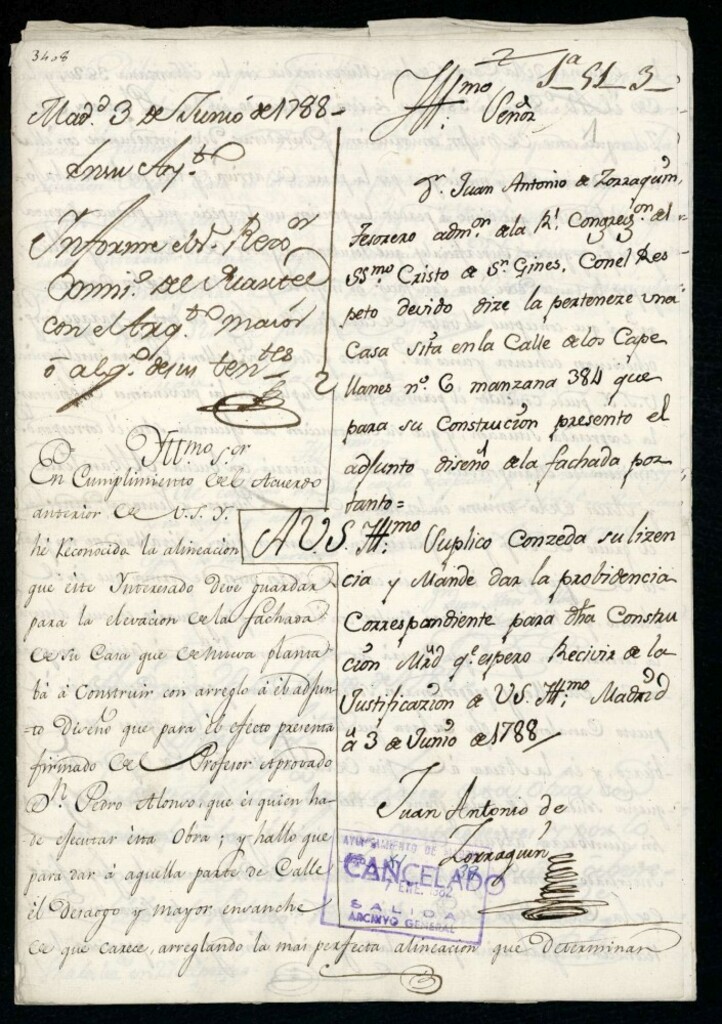 3408
1ª 51 3
Madᵈ 3 de Junio de 1788
En su Ayᵗᵒ
Informe el Sʳ Rexᵒʳ
Comiº del Quartel
con el Arqᵗᵒ maior
ó algº de sus tenᵗᵉˢ
Yllmo Sʳ
En Cumplimiento del Acuerdo
anterior de V.S.Y.
hé Reconocido la alineacion
que este Interesado deve guardar
para la elevacion de la fachada
de su Casa que de nueva planta
bá á Construir con arreglo á el adjun-
to Diseño que para el efecto presenta
firmado del Profesor Aprovado
Dⁿ Pedro Alonso, que es quien ha
de ejecutar esta Obra; y hallo que
para dar á aquella parte de Calle
el desaogo y mayor ensanche
de que carece, arreglando la mas perfecta alineacion que determinan
Yllᵐᵒ Señor
Dⁿ Juan Antonio de Zorraquin,
Tesorero admᵒⁿ de la Rˡ Congregᵒⁿ del
SSᵐᵒ Cristo de Sⁿ Gines, Con el Res-
peto devido dize la perteneze una
Casa sita en la Calle de los Cape
llanes nº 6 manzana 384 que
para su Construcion presento el
adjunto diseño de la fachada por
tanto=
A V.S. Yllᵐᵒ Suplico Conzeda su lizen
cia y Mande dar la probidencia
Correspondiente para dha Constru
cion Mrd qᵉ espero Recivir de la
Justificazion de VS. Yllᵐᵒ Madrid
á 3 de Junio de 1788
Juan Antonio de
Zorraquin
AYUNTAMIENTO DE
CANCELADO
7 ENE.
SALIDA
ARCHIVO GENERAL